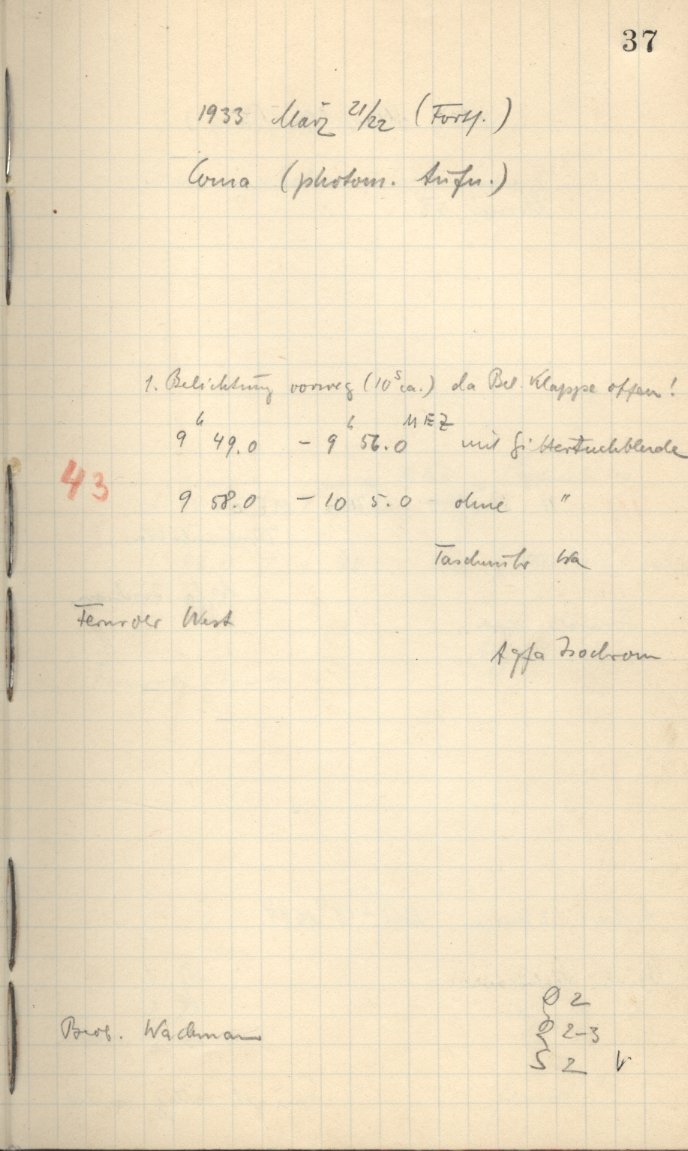 37
1933 März 21/22 (Forts.)
Coma (photom. Aufn.)
1. Belichtung vorweg (10s ca.) da Bel. Klappe offen!
9h 49.0 – 9h 56.0 MEZ mit Gittertuchblende
43
9 58.0 – 10 5.0 ohne "
Taschenuhr Wa
Fernrohr West
Agfa Isochrom
2
Beob. Wachmann
2-3
S 2 V